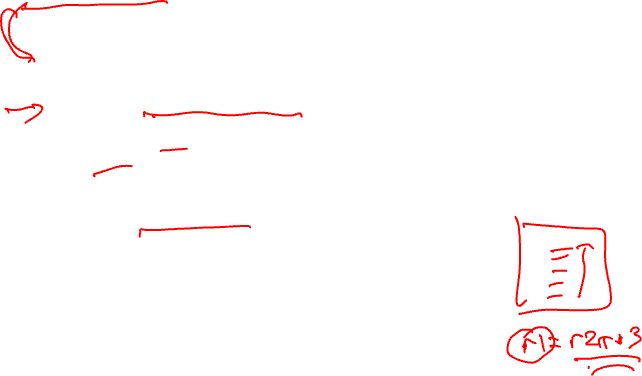 r1 = r2+r3